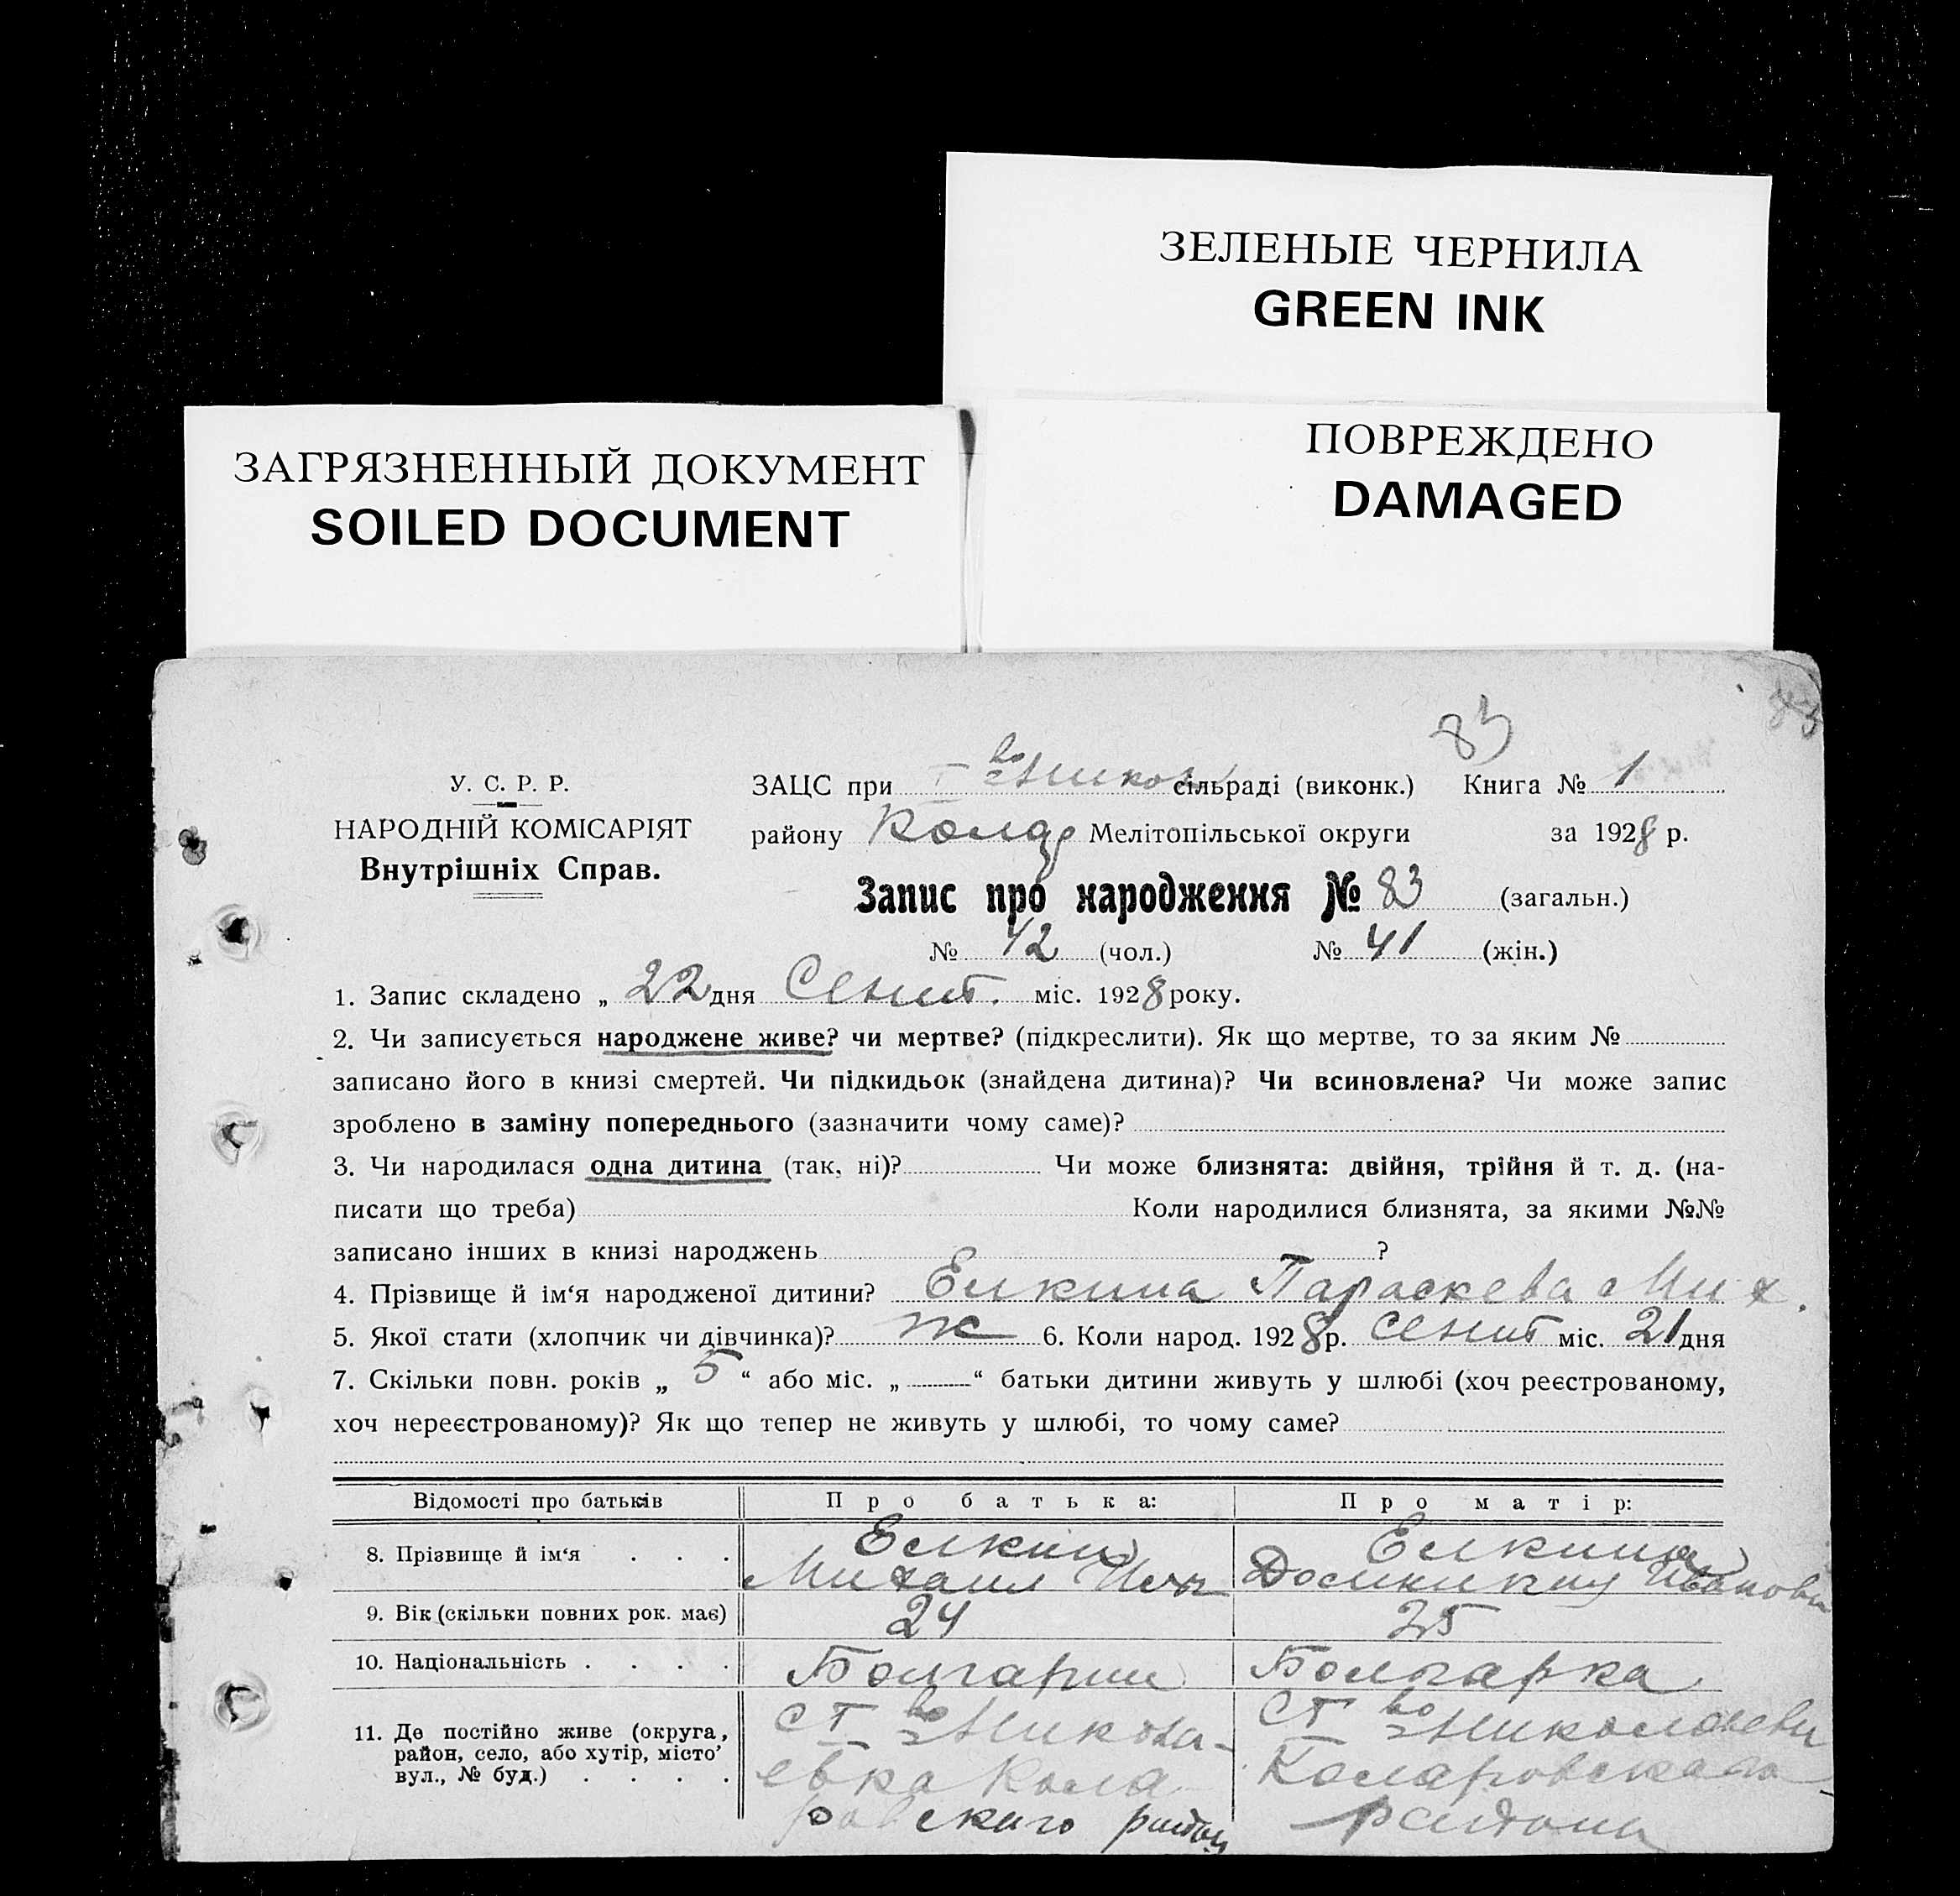 ЗЕЛЕНЫЕ ЧЕРНИЛА
GREEN INK
ПОВРЕЖДЕНО
DAMAGED
ЗАГРЯЗНЕННЫЙ ДОКУМЕНТ
SOILED DOCUMENT
83
У. С. Р. Р.
НАРОДНІЙ КОМІСАРІЯТ
Внутрішніх Справ.
ЗАЦС при I во Никол сільраді (виконк.) Книга № 1
району Колар Мелітопільської округи за 1928 р.
Запис про народження № 83 (загальн.)
№ 42 (чол.) № 41 (жін.)
1. Запис складено „ 22 дня Сент. міс. 1928 року.
2. Чи записується народжене живе? чи мертве? (підкреслити). Як що мертве, то за яким №
записано його в книзі смертей. Чи підкидьок (знайдена дитина)? Чи всиновлена? Чи може запис
зроблено в заміну попереднього (зазначити чому саме)?
3. Чи народилася одна дитина (так, ні)? Чи може близнята: двійня, трійня й т. д. (на-
писати що треба) Коли народилися близнята, за якими №№
записано інших в книзі народжень ?
4. Прізвище й ім‘я народженої дитини? Елкина Параскева Мих.
5. Якої стати (хлопчик чи дівчинка)? ж 6. Коли народ. 1928 р. Сент міс. 21 дня
7. Скільки повн. років „ 5 “ або міс. „ — “ батьки дитини живуть у шлюбі (хоч реєстрованому,
хоч нереєстрованому)? Як що тепер не живуть у шлюбі, то чому саме?
Відомості про батьків Про батька: Про матір:
8. Прізвище й ім‘я Елкин Михаил Елкина Ивановн
9. Вік (скільки повних рок. має) 24 25
10. Національність Болгарин Болгарка
11. Де постійно живе (округа, район, село, або хутір, місто’ вул., № буд.)
ст I во Никола-
евка Кола
ровского район
ст I во Николаевки
Коларовскаго
района